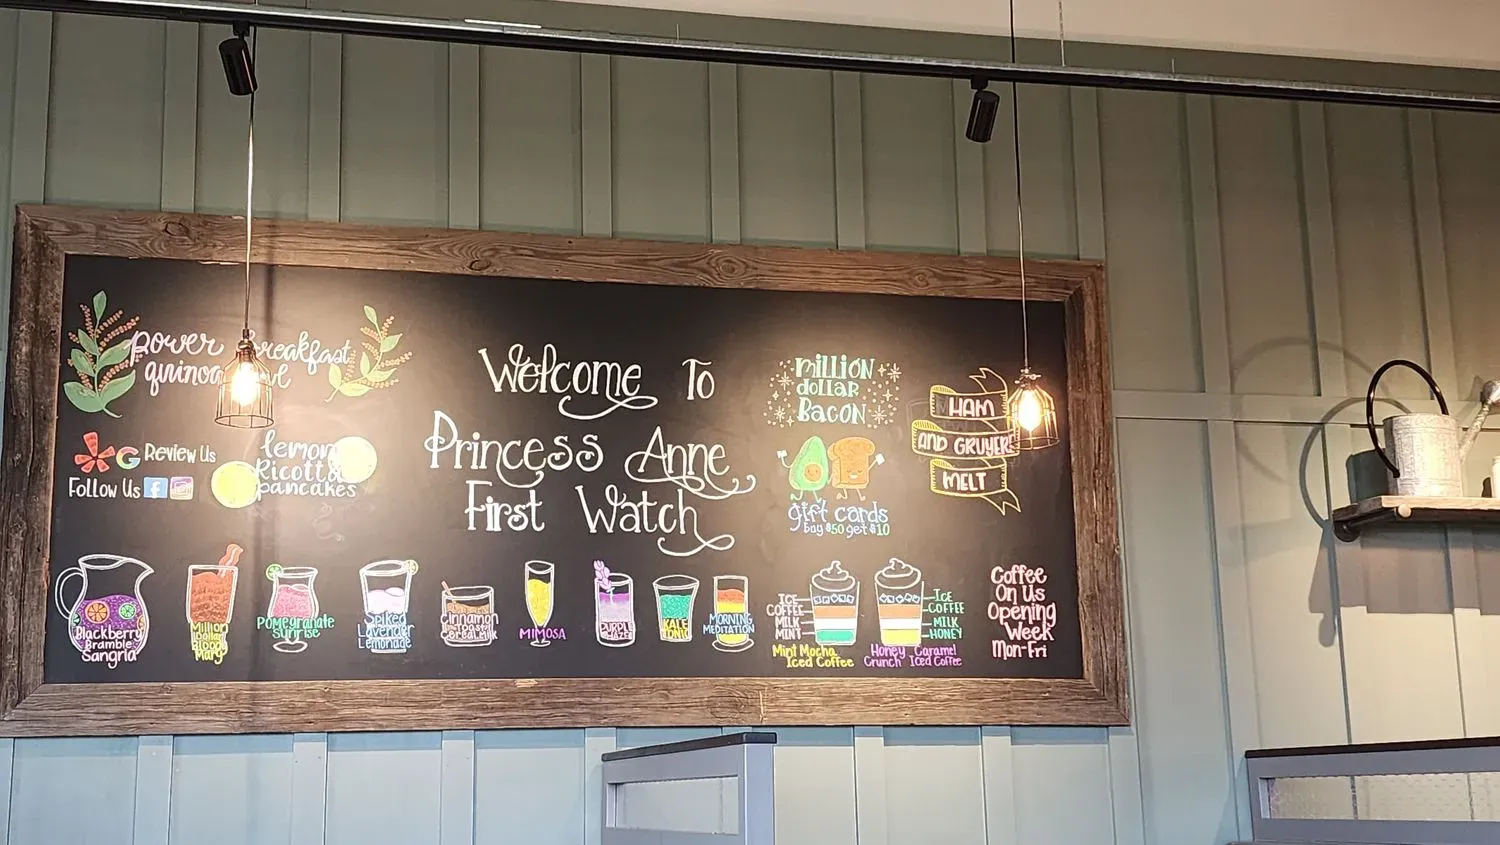 power breakfast
quinoa
Review Us
Follow Us
lemon
Ricotta
pancakes
Welcome To
Princess Anne
First Watch
million
dollar
Bacon
gift cards
buy $50 get $10
HAM
AND GRUYERE
MELT
Blackberry
Bramble
Sangria
Million
Dollar
Bloody
Mary
Pomegranate
Sunrise
Spiked
Lavender
Lemonade
Cinnamon
Toast
Cereal Milk
MIMOSA
PURPLE
HAZE
KALE
TONIC
MORNING
MEDITATION
ICE
COFFEE
MILK
MINT
Mint Mocha
Iced Coffee
ICE
COFFEE
MILK
HONEY
Honey Caramel
Crunch Iced Coffee
Coffee
On Us
Opening
Week
Mon-Fri